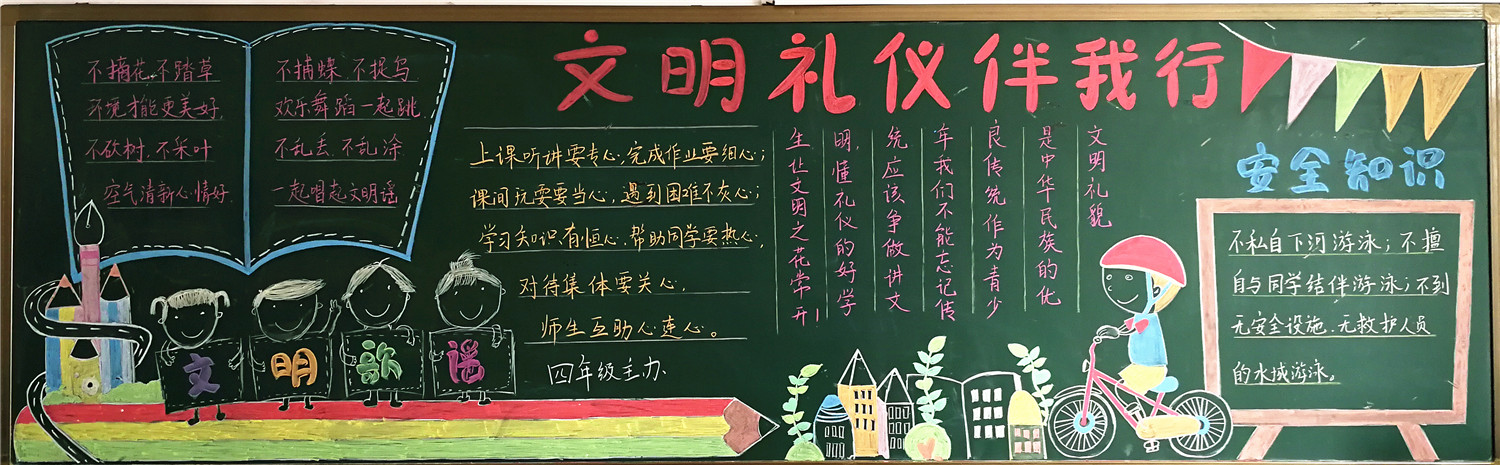 文明礼仪伴我行
不摘花.不踏草
环境才能更美好.
不砍树.不采叶
空气清新心情好.
不捕蝶.不捉鸟
欢乐舞蹈一起跳
不乱丢.不乱涂
一起唱起文明谣
文明歌谣
上课听讲要专心,完成作业要细心;
课间玩耍要当心,遇到困难不灰心;
学习知识有恒心,帮助同学要热心,
对待集体要关心,
师生互助心连心。
四年级主办
文明礼貌
是中华民族的优
良传统作为青少
年我们不能忘记传
统应该争做讲文
明,懂礼仪的好学
生让文明之花常开!
安全知识
不私自下河游泳;不擅
自与同学结伴游泳;不到
无安全设施.无救护人员
的水域游泳。